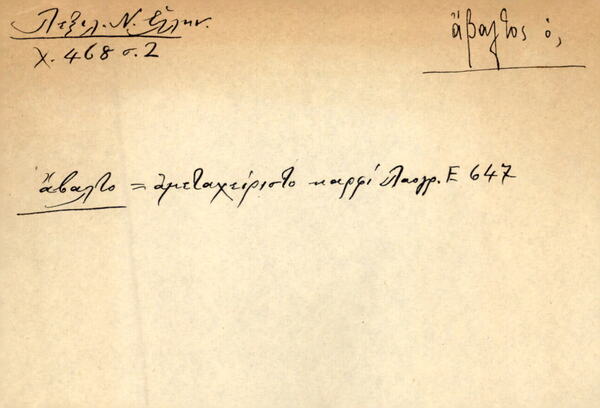 Λεξιλ. Ν. Ἑλλην.
χ. 468 σ. 2
ἄβαλτος ὁ,
ἄβαλτο = ἀμεταχείριστο καρφί Λαογρ. Ε 647